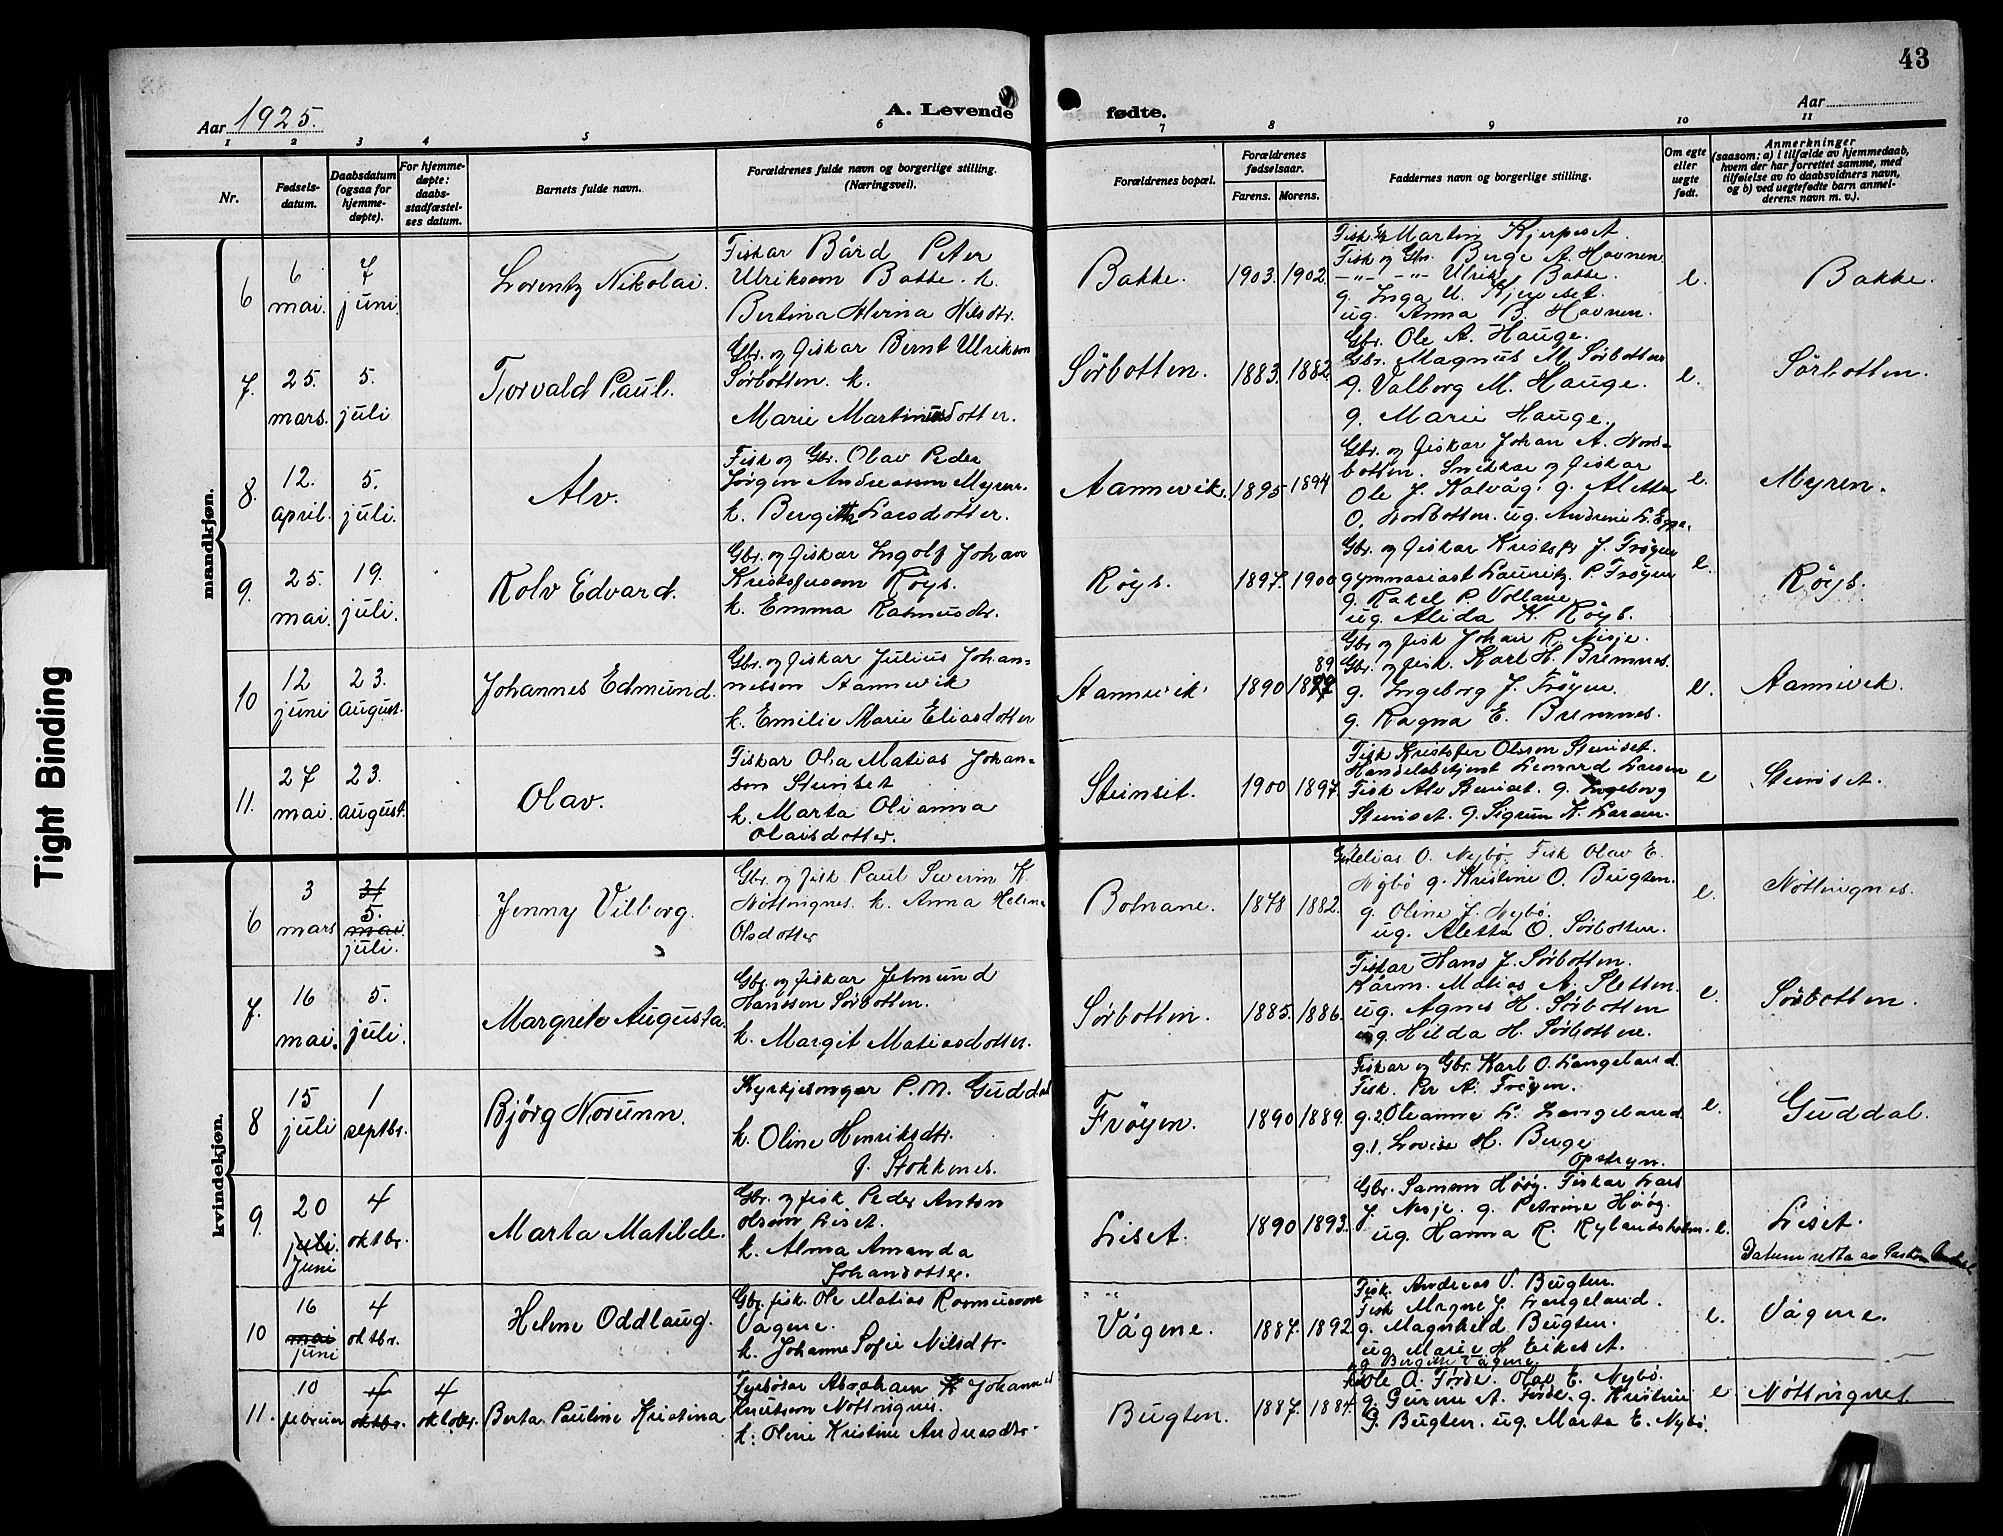 43
Aar 1925.
A. Levende fødte.
Aar
1 2 3 4 5 6 7 8 9 10 11
Nr.
Fødsels-
datum.
Daabsdatum
(ogsaa for
hjemme-
døpte).
For hjemme-
døpte:
daabs-
stadfæstel-
ses datum.
Barnets fulde navn.
Forældrenes fulde navn og borgerlige stilling.
(Næringsvei).
Forældrenes bopæl.
Forældrenes
fødselsaar.
Farens. Morens.
Faddernes navn og borgerlige stilling.
Om egte
eller
uegte
født.
Anmerkninger
(saasom: a) i tilfælde av hjemmedaab,
hvem der har forrettet samme, med
tilføielse av to daabsvidners navn,
og b) ved uegtefødte barn anmel-
derens navn m. v.).
Tight Binding
mandkjøn.
6
6
mai.
7
juni.
Lorentz Nikolai.
Fiskar Bård Peter
Ulriksson Bakke. k.
Bertina Nilsdtr.
Bakke.
1903. 1902.
Martin Kjerpeset.
Fisk og Gbr. Berge A. Havnen
Ulrik Bakke.
g. Inga U. Kjerpeset.
ug. Anna B. Havnen.
e.
Bakke.
7.
25.
mars.
5.
juli
Torvald Paul.
Gbr. og fiskar Bernt Ulriksson
Sörbotten. k.
Marie Martinusdotter.
Sörbotten.
1883. 1882
Gbr. Ole A. Hauge.
Gbr. Magnus M. Sörbotten
g. Valborg M. Hauge.
g. Marie Hauge.
e.
Sörbotten.
8.
12.
april.
5.
juli.
Alv.
Fisk og Gbr. Olav Peder
Jørgen Andreasson Myren.
k. Bergitta Larsdotter.
Aannevik.
1895 1894
Gbr. og fiskar Johan A. Nord-
botten. Snikkar og fiskar
Ole J. Kalvåg. g. Aletta
O. Nordbotten. ug. Andrine L.
e.
Myren.
9.
25.
mai.
19.
juli.
Kolv Edvard.
Gbr. og fiskar Ingolf Johan
Kristofersson Röys.
k. Emma Rasmusdtr.
Röys.
1897. 1900
Gbr. og fiskar Kristofer J. Fröyen
gymnasiast Lauritz P. Fröyen
g. Rakel P. Vollane
ug. Alida K. Röys.
e.
Röys.
10
12
juni
23.
august.
Johannes Edmund.
Gbr. og fiskar Julius Johan-
nesson Aannevik
k. Emilie Marie Eliasdotter
Aannevik.
1890 1897 89
Gbr. og fisk Johan R. Nesje.
Gbr. og fisk. Karl H. Bremnes.
g. Ingeborg J. Fröyen.
g. Ragna E. Bremnes.
e.
Aannevik.
11.
27
mai.
23.
august.
Olav.
Fiskar Ola Matias Johan-
son Steinset
k. Marta Olianna
Olaisdotter.
Steinset.
1900 1897.
Fisk Kristofer Olsson Steinset.
Handelsbetjent Lenard Larsen
Fisk Alv Steinset. g. Ingeborg
Steinset. g. Sigrun K. Larsen.
e
Steinset.
kvindekjøn.
6
3
mars
31
5.
mai.
juli.
Jenny Vilborg.
Gbr. og fisk Paul Severin K.
Nöttingnes. k. Anna Helene
Olsdotter
Botnane.
1878 1882.
Elias O. Nybø. Fisk Olav E.
Nybø g. Kristine O. Bugten.
g. Oline J. Nybø.
ug. Aletta O. Sörbotten.
e.
Nöttingnes.
7.
16
mai.
5.
juli.
Margrete Augusta.
Gbr. og fiskar Jetmund
Hansson Sörbotten.
k. Margit Matiasdotter.
Sörbotten.
1885. 1886.
Fiskar Hans J. Sörbotten.
Matias A. Sletten.
ug. Agnes H. Sörbotten
ug. Hilda H. Sörbotten.
e.
Sörbotten.
8
15
juli
1
septbr.
Björg Norunn.
Kyrkjesongar P. M. Guddal
k. Oline Henriksdtr.
f. Stokkenes.
Fröyen.
1890 1889.
Fiskar og Gbr. Karl O. Langeland.
Fisk. Per A. Fröyen.
g. 2. Oleanna L. Langeland
g. 1. Lovise H. Berge
Opstryn.
e.
Guddal.
9.
20
juli.
Juni
4
oktbr.
Marta Matilde.
Gbr. og fisk Peder Anton
Olsson Liset.
k. Alma Amanda
Johansdotter.
Liset.
1890 1893.
Gbr. Samson Höög. Fiskar Lars
J. Nesje. g. Petrine Höög.
ug. Hanna R. Rylandsholm.
e.
Liset.
Datum retta av
10
16
mai
juni
4
oktbr.
Helene Oddlaug.
Gbr. fisk. Ole Matias Rasmusson
Vågene.
k. Johanne Sofie Nilsdtr.
Vågene.
1887. 1892
Fisk. Andreas V. Bugten.
Fisk Magne J. Langeland.
g. Magnhild Bugten.
ug. Marie H. Eikeset.
g. Vågene
e.
Vågene.
11.
10
februar
4
oktbr.
4
oktober.
Berta Pauline Kristina
Fyrbøtar Abraham Johannes
Knutson Nöttingnes.
k. Oline Kristine Andreasdtr.
Bugten.
1887. 1884.
Ole A. Förde. Olav E. Nybø.
g. Gurine A. Förde. g. Kristine
G. Bugten. ug. Marta E. Nybø.
e
Nöttingnes.